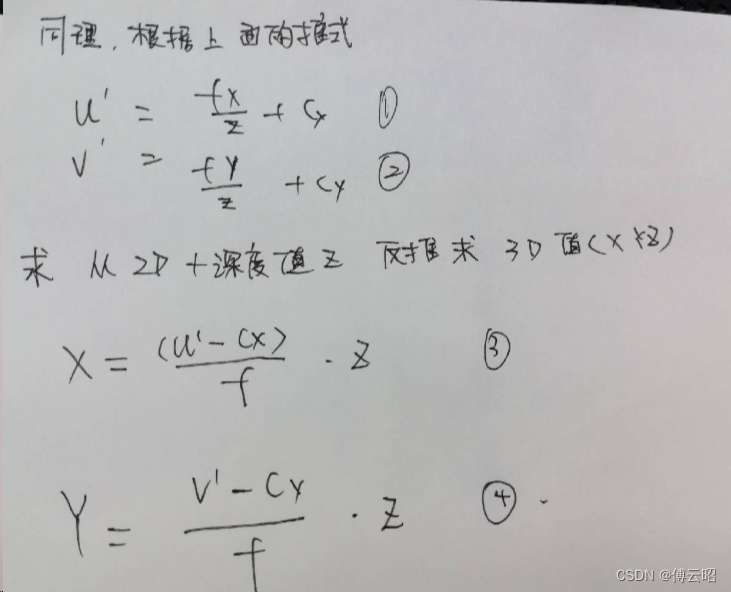 同理，根据上面的推式
u' = fx/z + Cx ①
v' = fY/z + Cy ②
求 从 2D + 深度值 z 反推求 3D 值(X Y Z)
X = (u' - Cx)/f · z ③
Y = v' - Cy/f · z ④ ·
CSDN @傅云昭